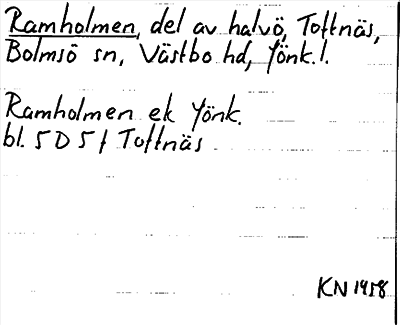 Ramholmen, del av halvö, Toftnäs,
Bolmsö sn, Västbo hd, Jönk. l.
Ramholmen ek Jönk.
bl. 5 D 5 f Toftnäs
KN 1958